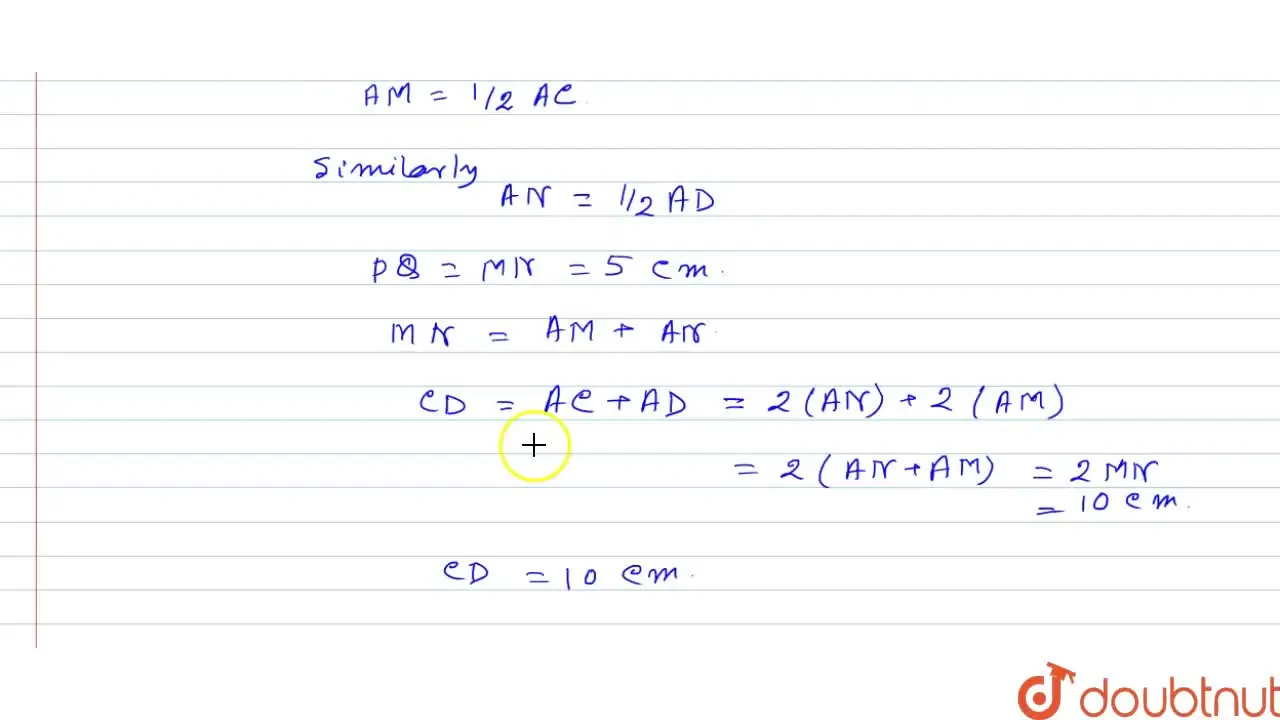 AM = 1/2 AC
Similarly
AN = 1/2 AD
PQ = MN = 5 cm.
MN = AM + AN.
CD = AC + AD = 2(AN) + 2(AM)
= 2(AN + AM) = 2MN
= 10 cm.
CD = 10 cm.
doubtnut